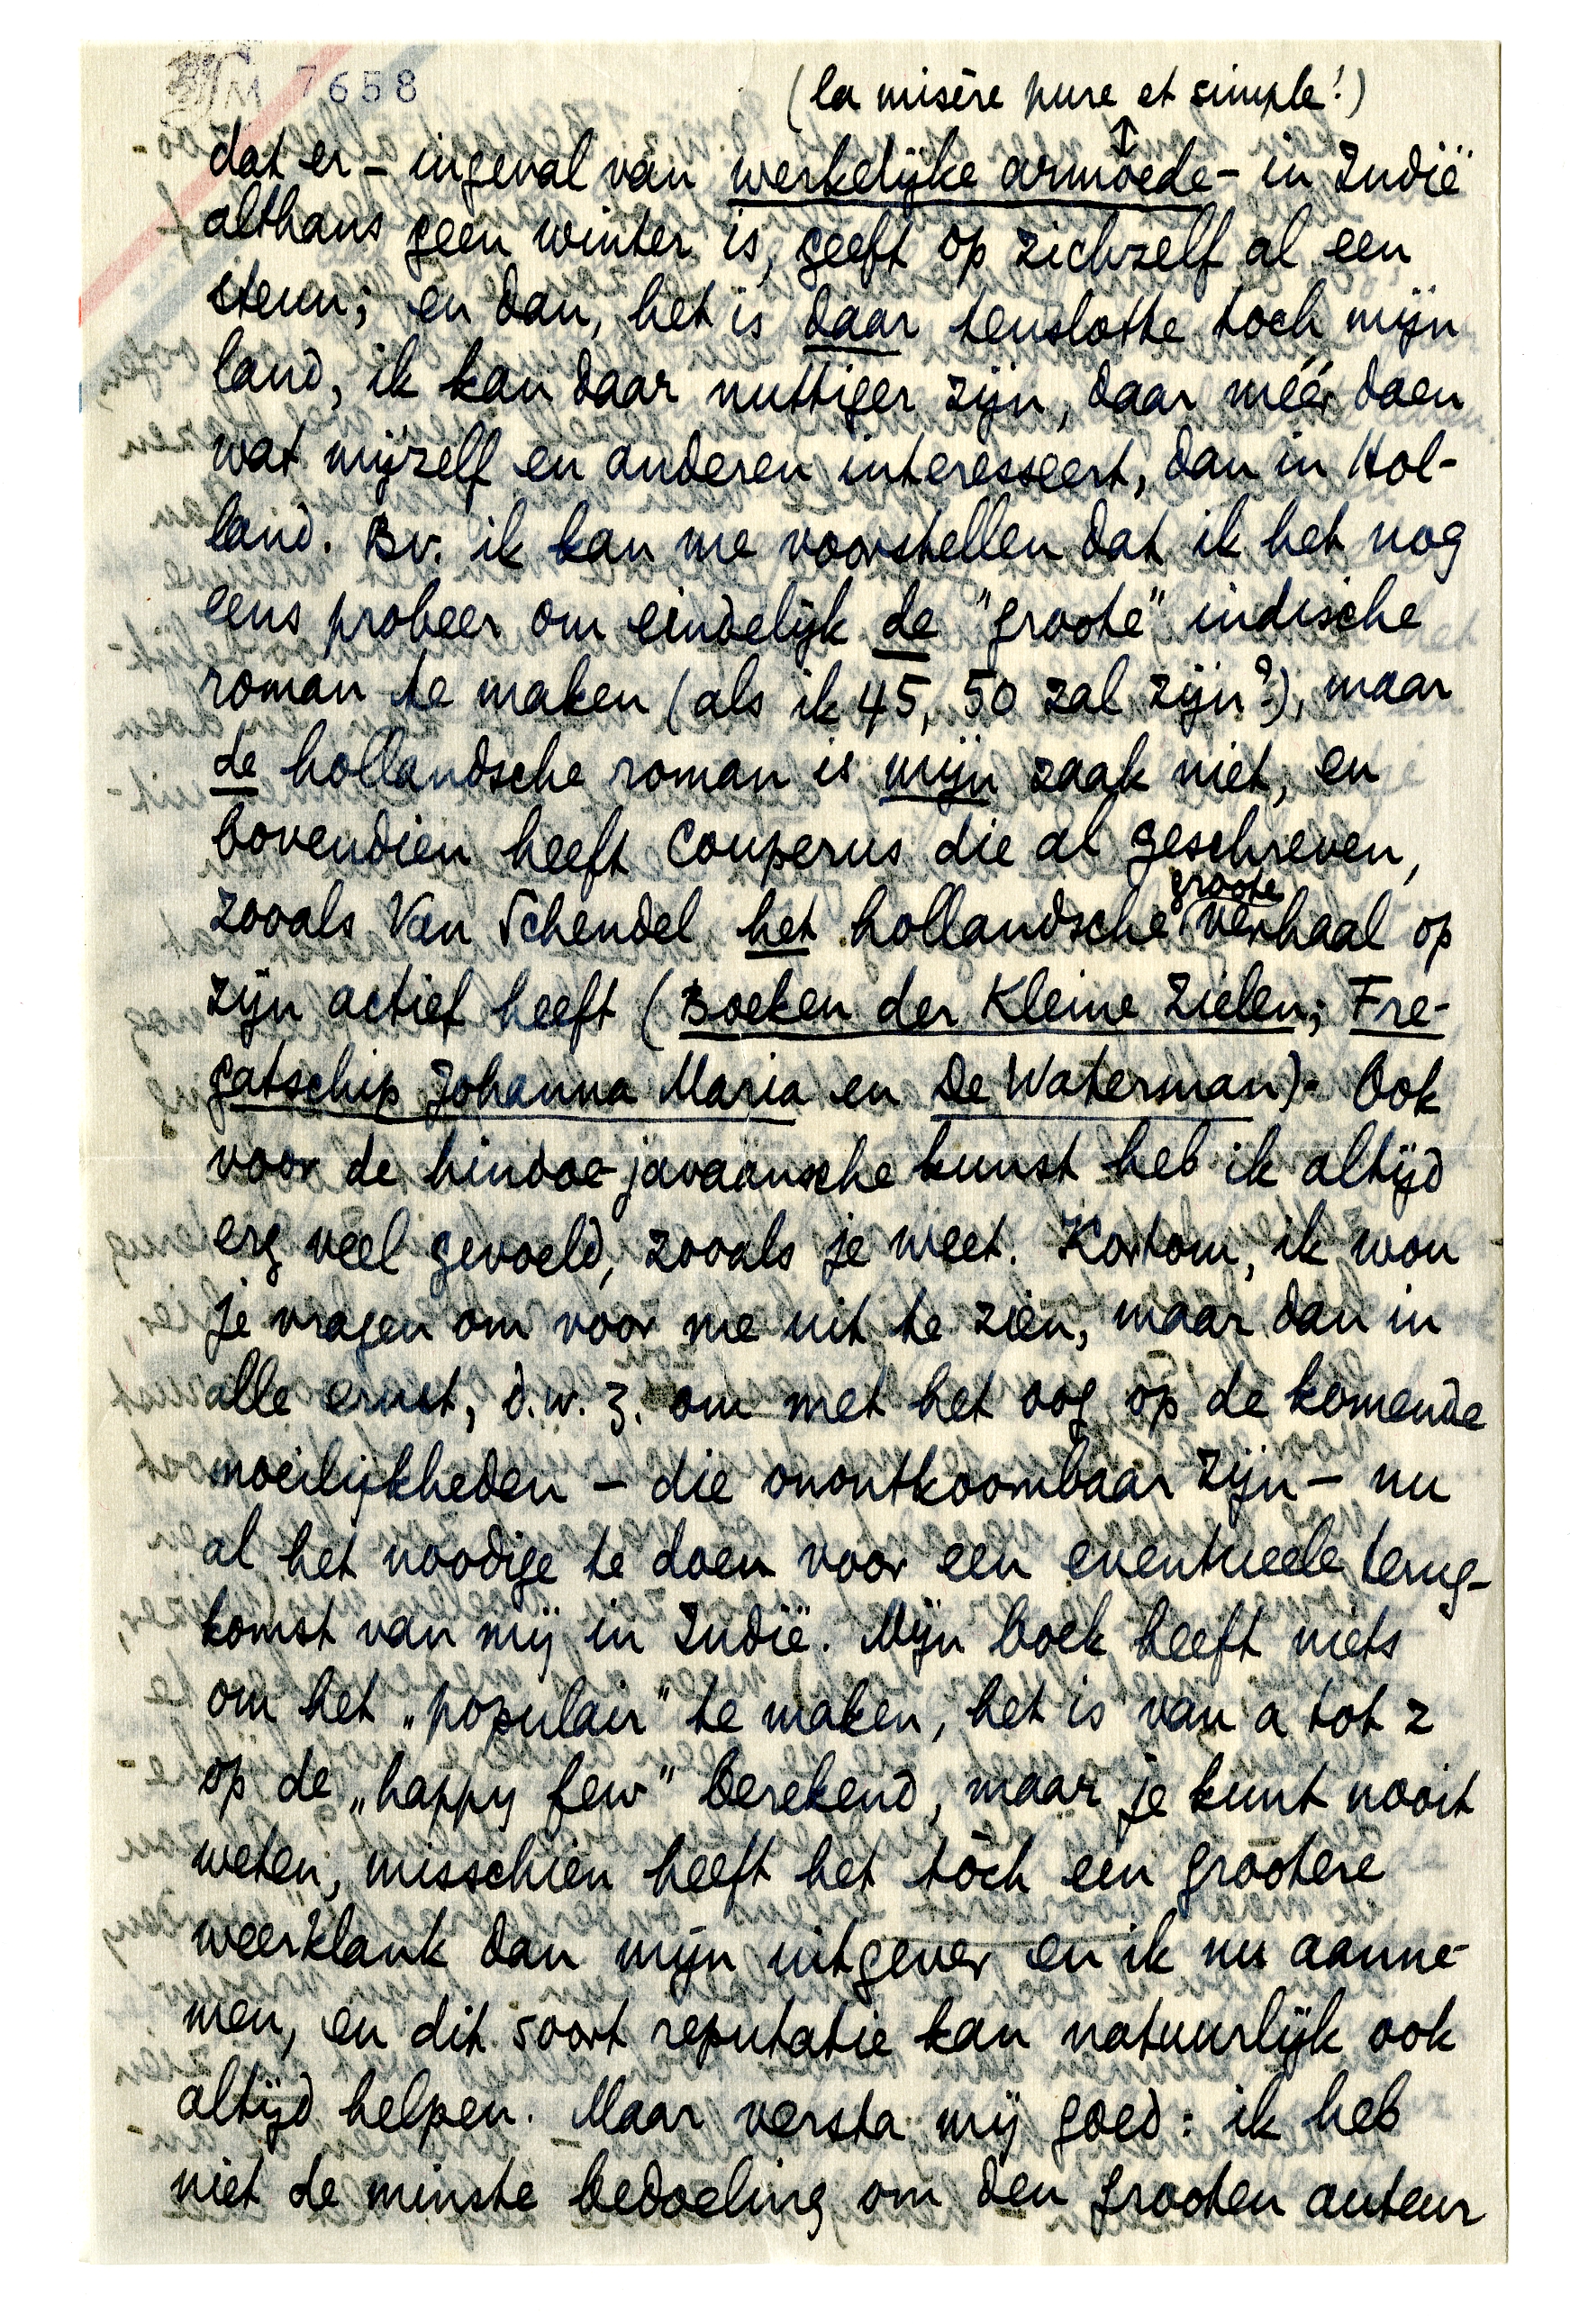 M 7658
(la misère pure et simple!)
dat er – ingeval van werkelijke armoede – in Indië
althans geen winter is, geeft op zichzelf al een
steun; en dan, het is daar tenslotte toch mijn
land, ik kan daar nuttiger zijn, daar méér doen
wat mijzelf en anderen interesseert, dan in Hol-
land. Bv. ik kan me voorstellen dat ik het nog
eens probeer om eindelijk de "groote" indische
roman te maken (als ik 45, 50 zal zijn?), maar
de hollandsche roman is mijn zaak niet, en
bovendien heeft Couperus die al geschreven,
zooals Van Schendel het hollandsche groote verhaal op
zijn actief heeft (Boeken der Kleine Zielen; Fre-
gatschip Johanna Maria en De Waterman). Ook
voor de hindoe-javaansche kunst heb ik altijd
erg veel gevoeld, zooals je weet. Kortom, ik wou
je vragen om voor me uit te zien, maar dan in
alle ernst, d.w.z. om met het oog op de komende
moeilijkheden – die onontkoombaar zijn – nu
al het noodige te doen voor een eventueele terug-
komst van mij in Indië. Mijn boek heeft niets
om het „populair" te maken, het is van a tot z
op de „happy few" berekend, maar je kunt nooit
weten, misschien heeft het tòch een grootere
weerklank dan mijn uitgever en ik nu aanne-
men, en dit soort reputatie kan natuurlijk ook
altijd helpen. Maar versta mij goed: ik heb
niet de minste bedoeling om den grooten auteur